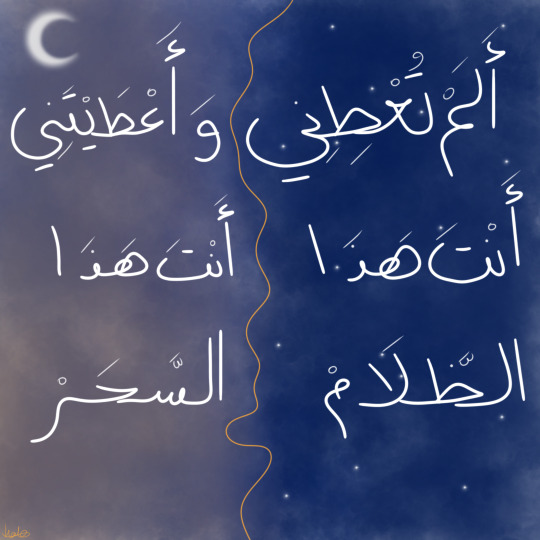 أَلَمْ تُعْطِنِي
أَنْتَ هَذَا
الظَّلَامْ
وَ أَعْطَيْتَنِي
أَنْتَ هَذَا
السَّحَرْ